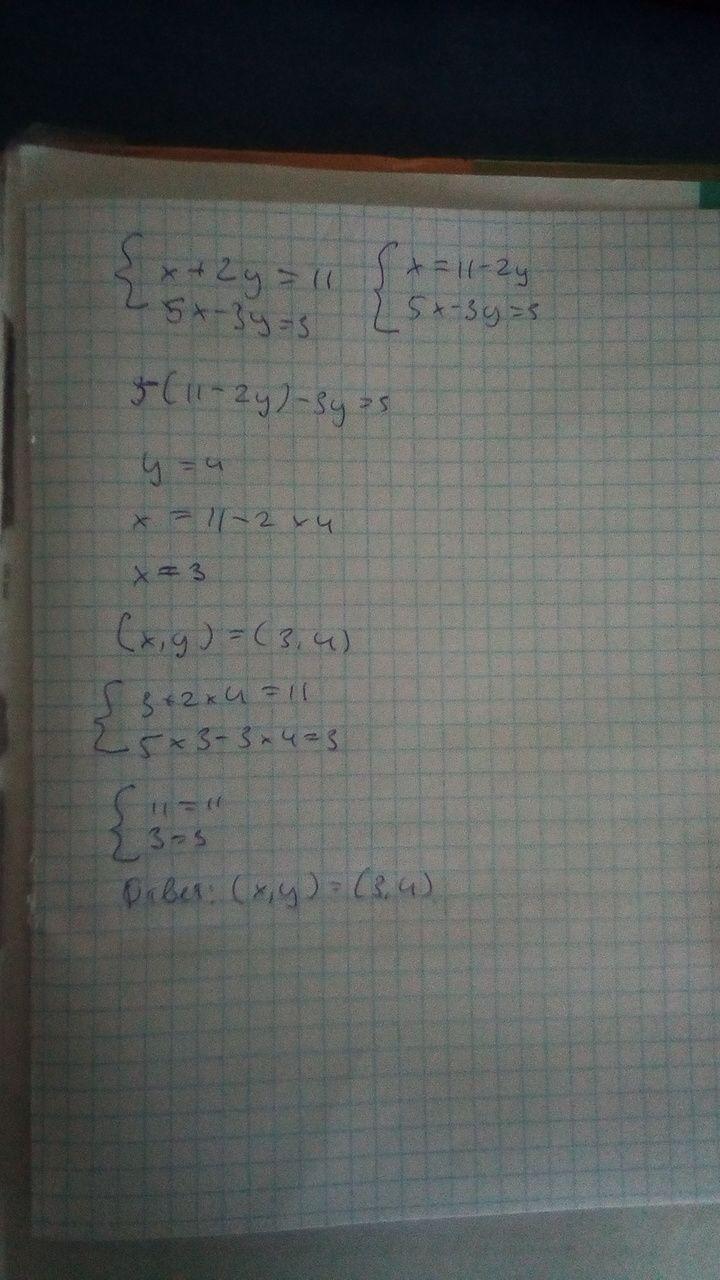 { x+2y=11 { x=11-2y
5x-3y=3 5x-3y=3
5(11-2y)-3y=3
y=4
x=11-2×4
x=3
(x,y)=(3,4)
{ 3+2×4=11
5×3-3×4=3
{ 11=11
3=3
Ответ: (x,y)=(3,4)